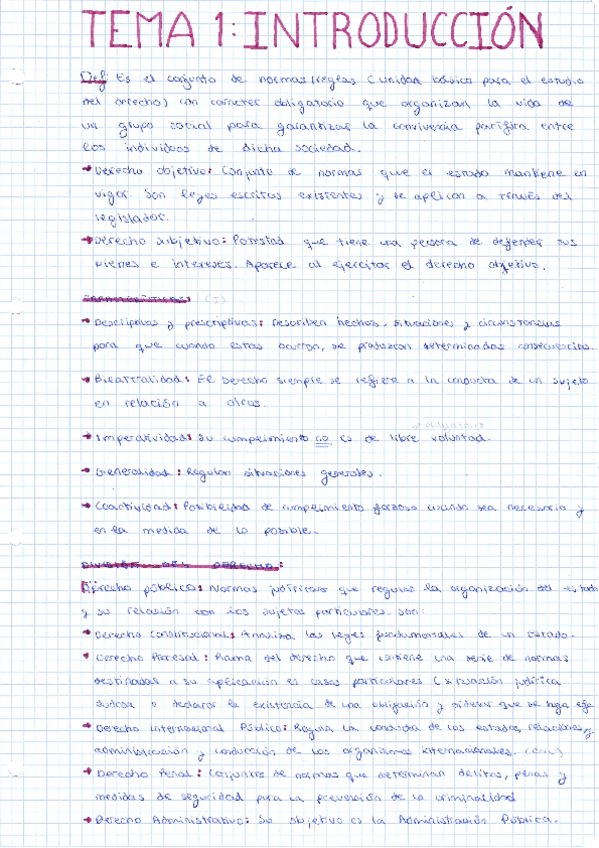 TEMA 1: INTRODUCCIÓN
Def: Es el conjunto de normas/reglas (unidad básica para el estudio
del derecho) con carácter obligatorio que organizan la vida de
un grupo social para garantizar la convivencia pacífica entre
los individuos de dicha sociedad.
→ Derecho objetivo: Conjunto de normas que el estado mantiene en
vigor. Son leyes escritas existentes y se aplican a través del
legislador.
→ Derecho subjetivo: Potestad que tiene una persona de defender sus
bienes e intereses. Aparece al ejercitar el derecho objetivo.
(5)
→ Descriptivas y prescriptivas: Describen hechos, situaciones y circunstancias
para que cuando estas ocurran, se produzcan determinadas consecuencias.
→ Bilateralidad: El Derecho siempre se refiere a la conducta de un sujeto
en relación a otros.
→ Imperatividad: Su cumplimiento no es de libre voluntad.
→ Generalidad: Regulan situaciones generales.
→ Coactividad: Posibilidad de cumplimiento forzoso cuando sea necesario y
en la medida de lo posible.
DIVISIÓN DEL DERECHO:
Derecho público: Normas jurídicas que regulan la organización del estado
y su relación con los sujetos particulares. Son:
→ Derecho Constitucional: Analiza las leyes fundamentales de un Estado.
→ Derecho Procesal: Rama del derecho que contiene una serie de normas
destinadas a su aplicación en casos particulares ( situación jurídica
dudosa o declarar la existencia de una obligación y ordenar que se haga
→ Derecho Internacional Público: Regula la conducta de los estados, relaciones,
administración y conducción de los organismos internacionales.
→ Derecho Penal: Conjunto de normas que determinan delitos, penas y
medidas de seguridad para la prevención de la criminalidad
→ Derecho Administrativo: Su objetivo es la Administración Pública.